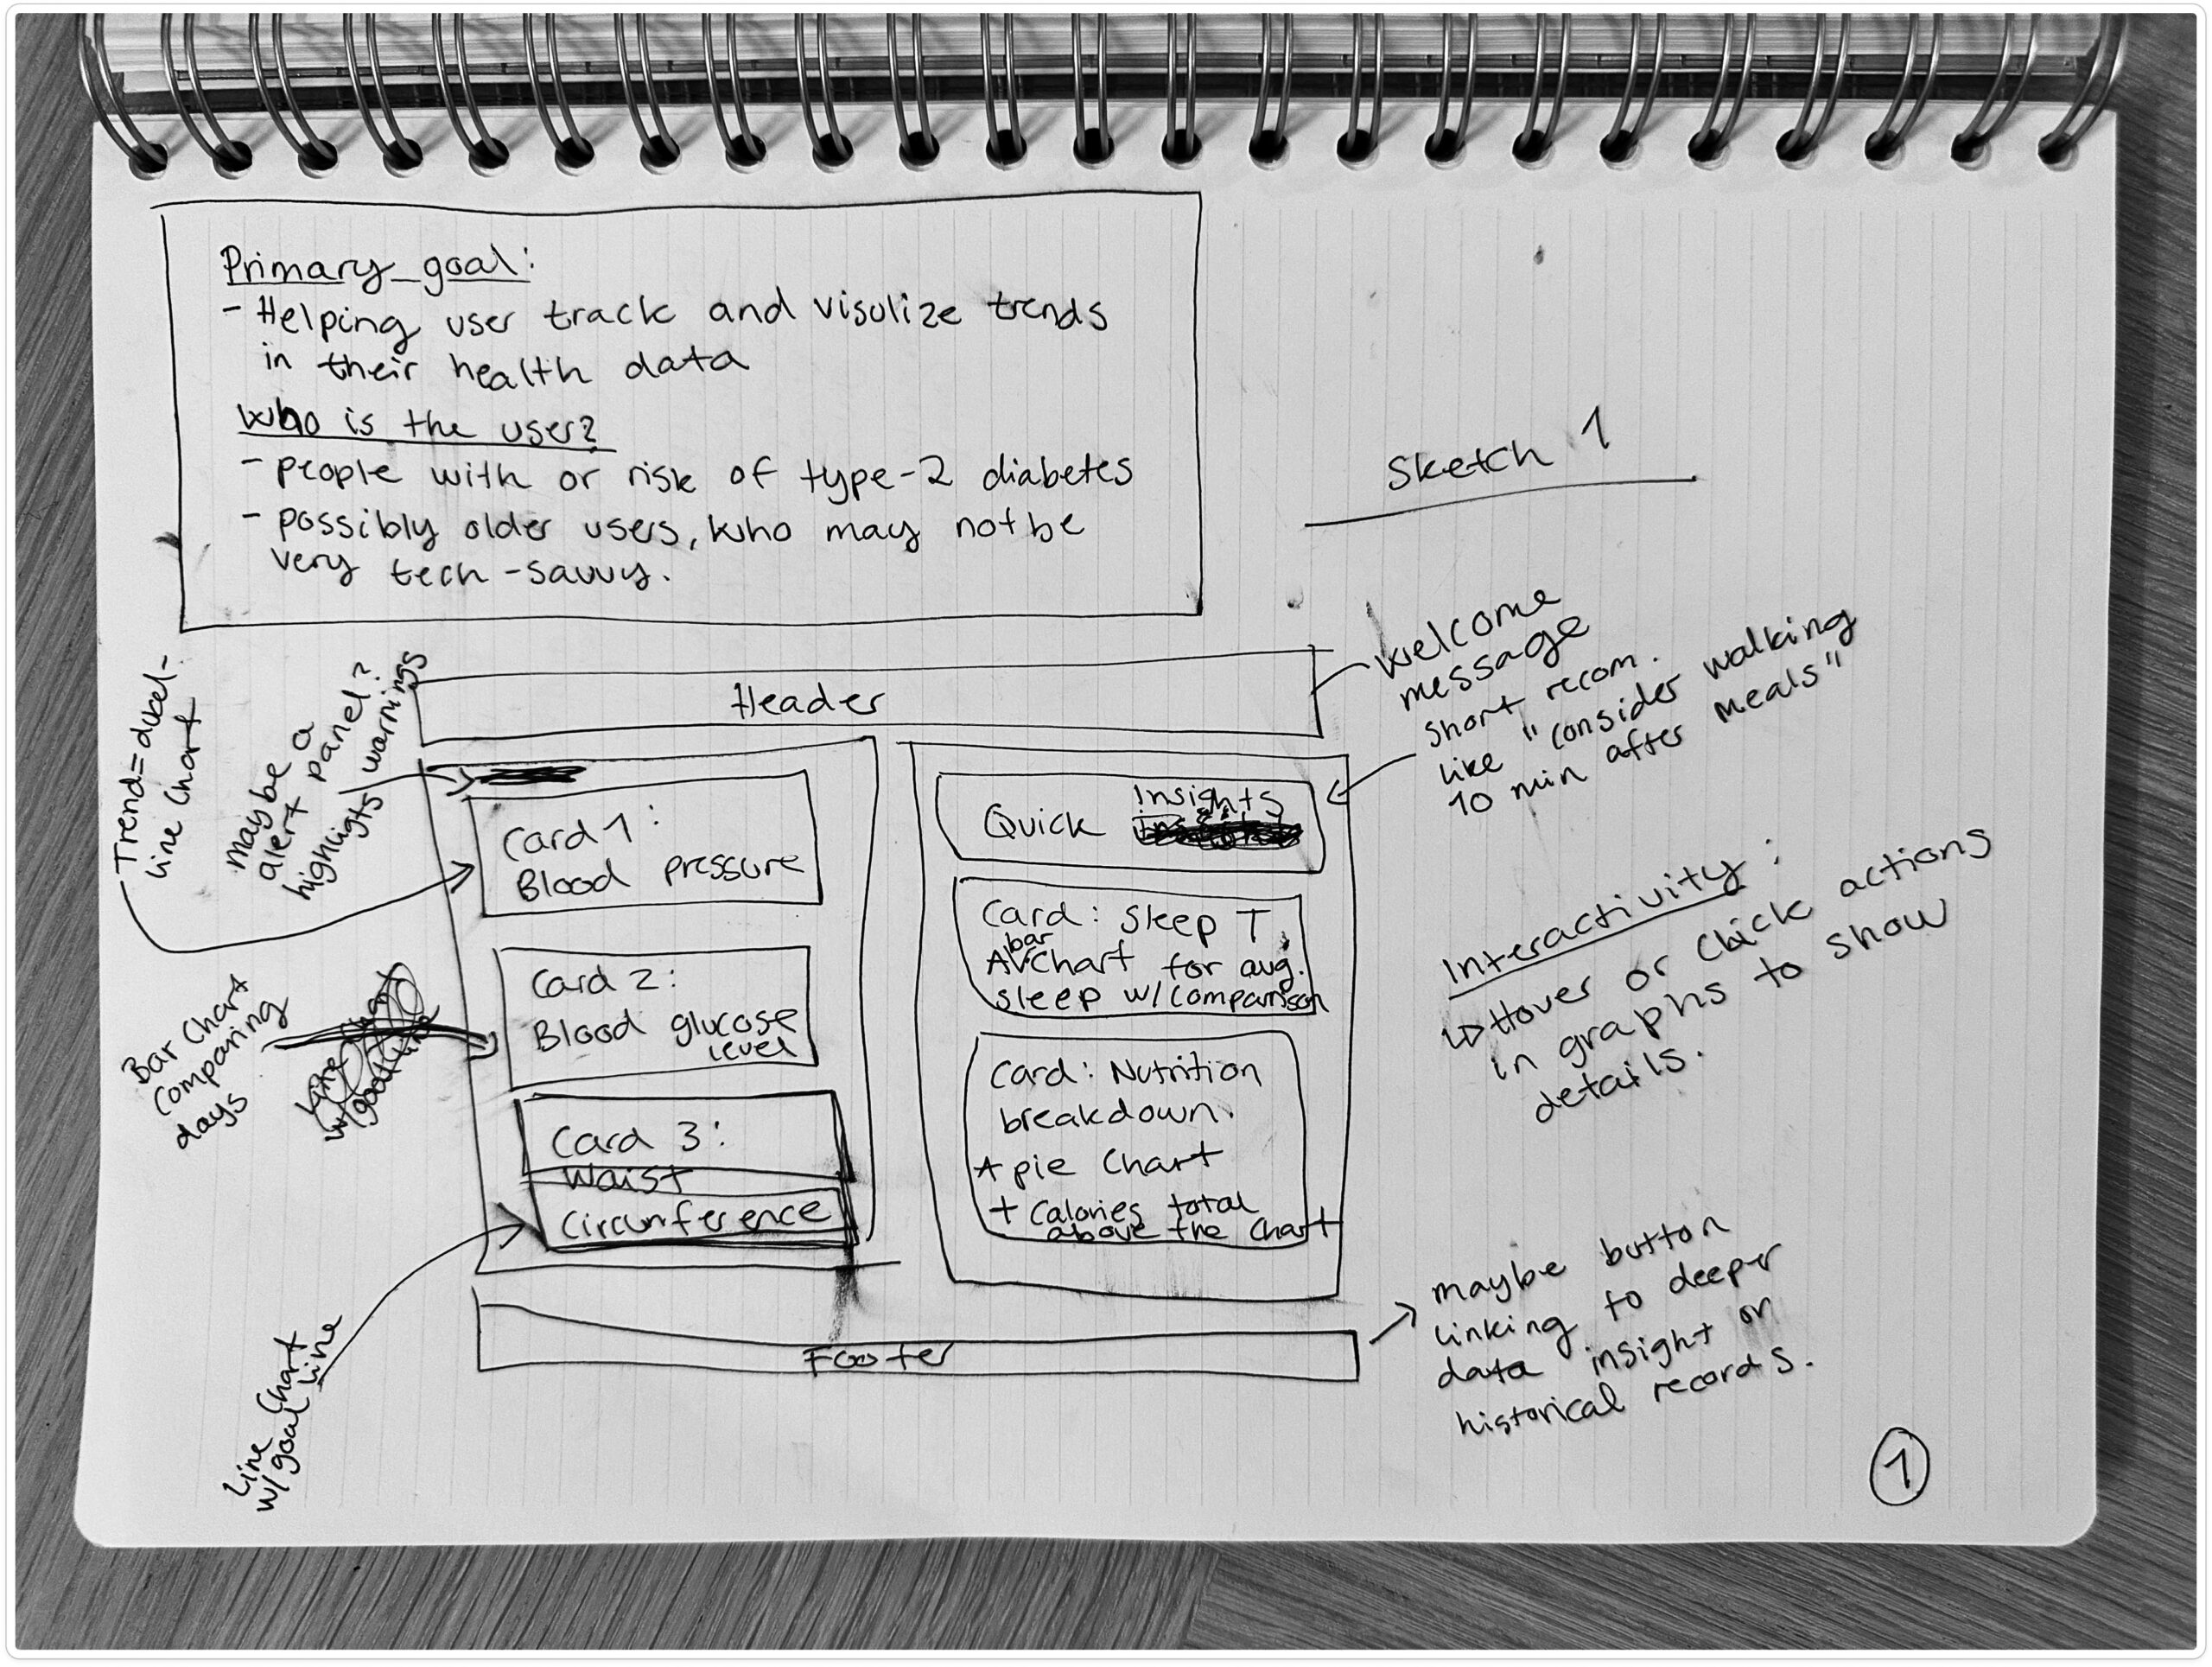 Primary goal:
- Helping user track and visulize trends
in their health data
Who is the user?
- people with or risk of type-2 diabetes
- possibly older users, who may not be
very tech-savvy.
Sketch 1
Header
welcome
message
short recom.
like "consider walking
10 min after meals"
Trend = dual-
line chart
maybe a
alert panel?
highligts warnings
Card 1:
Blood pressure
Quick Insights
Card: Sleep T
bar
Chart for avg.
sleep w/comparison
Interactivity:
Hover or Click actions
in graphs to show
details.
Bar Chart
Comparing
days
Line Chart
w/goal line
Card 2:
Blood glucose
level
Card 3:
Waist
Circumference
Card: Nutrition
breakdown.
+ pie Chart
+ Calories total
above the Chart
Line Chart
w/ goal line
Footer
maybe button
linking to deeper
data insight or
historical records.
1